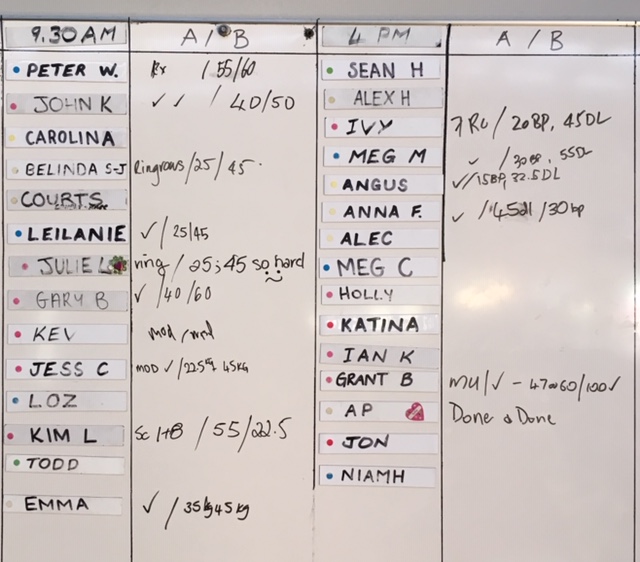 9.30AM A/B 4 PM A / B
PETER W. Rx / 55/60
JOHN K ✓ ✓ / 40/50
CAROLINA
BELINDA S-J Ringrows/25/45
COURTS
LEILANIE ✓ / 25/45
JULIE L ring / 25; 45 so hard
GARY B ✓ /40/60
KEV mod /
JESS C MOD ✓ /22.5 45KG
LOZ
KIM L Sc / 55/22.5
TODD
EMMA ✓ / 35kg 45kg
SEAN H
ALEX H
IVY / 20BP, 45DL
MEG M ✓ / 55DL
ANGUS ✓✓/15BP, 32.5DL
ANNA F. ✓ /45dl /30bp
ALEC
MEG C
HOLLY
KATINA
IAN K
GRANT B MU/✓ - 60/100✓
AP Done & Done
JON
NIAMH